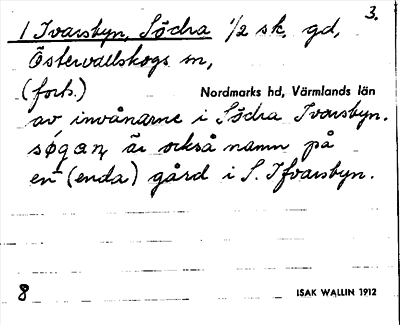 3.
1 Ivarsbyn, Södra 1/2 sk. gd,
Östervallskogs sn,
(forts.) Nordmarks hd, Värmlands län
av invånarne i Södra Ivarsbyn.
är också namn på
en (enda) gård i S. Ifvarsbyn.
8 ISAK WALLIN 1912